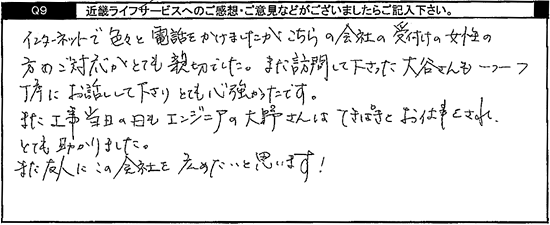 Q9 近畿ライフサービスへのご感想・ご意見などがございましたらご記入下さい。
インターネットで色々と電話をかけましたがこちらの会社の受付けの女性の
方のご対応がとても親切でした。また訪問して下さった大谷さんも一つ一つ
丁寧にお話しして下さりとても心強かったです。
また工事当日の日もエンジニアの大野さんはてきぱきとお仕事をされ、
とても助かりました。
また友人にこの会社を広めたいと思います!